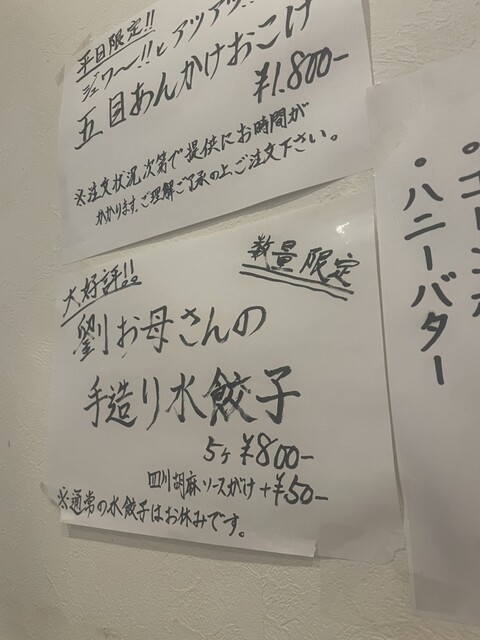 平日限定!!
ジュワ〜!!とアツアツ!!
五目あんかけおこげ
¥1.800-
※注文状況次第で提供にお時間が
かかります。ご理解ご了承の上、ご注文下さい。
大好評!!
数量限定
劉お母さんの
手造り水餃子
5ヶ ¥800-
四川胡麻ソースがけ+¥50-
※通常の水餃子はお休みです。
・ハニーバター